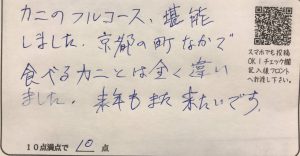 カニのフルコース、堪能
しました。京都の町なかで
食べるカニとは全く違い
ました。来年もまた来たいです。
スマホでも投稿
OK!チェック欄
記入後フロント
へお渡し下さい。
10点満点で 10 点